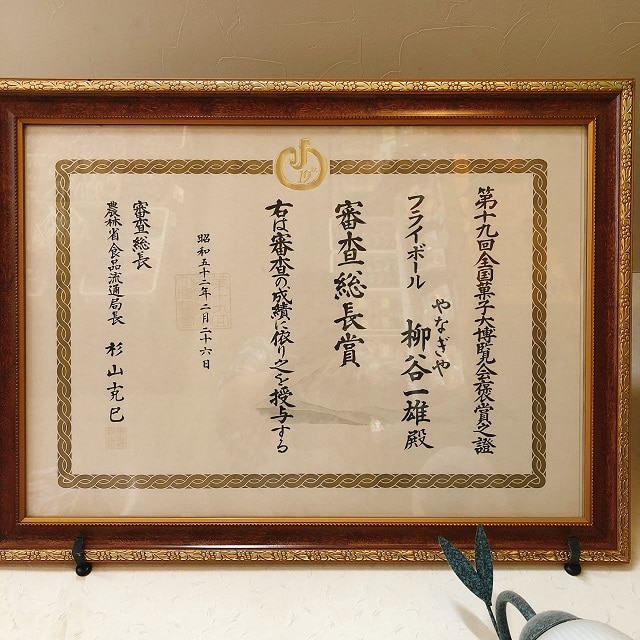 第十九回全国菓子大博覧会褒賞之證
フライボール
やなぎや
柳谷一雄殿
審査総長賞
右は審査の成績に依り之を授与する
昭和五十二年二月二十六日
審査総長
農林省食品流通局長 杉山克巳
19th